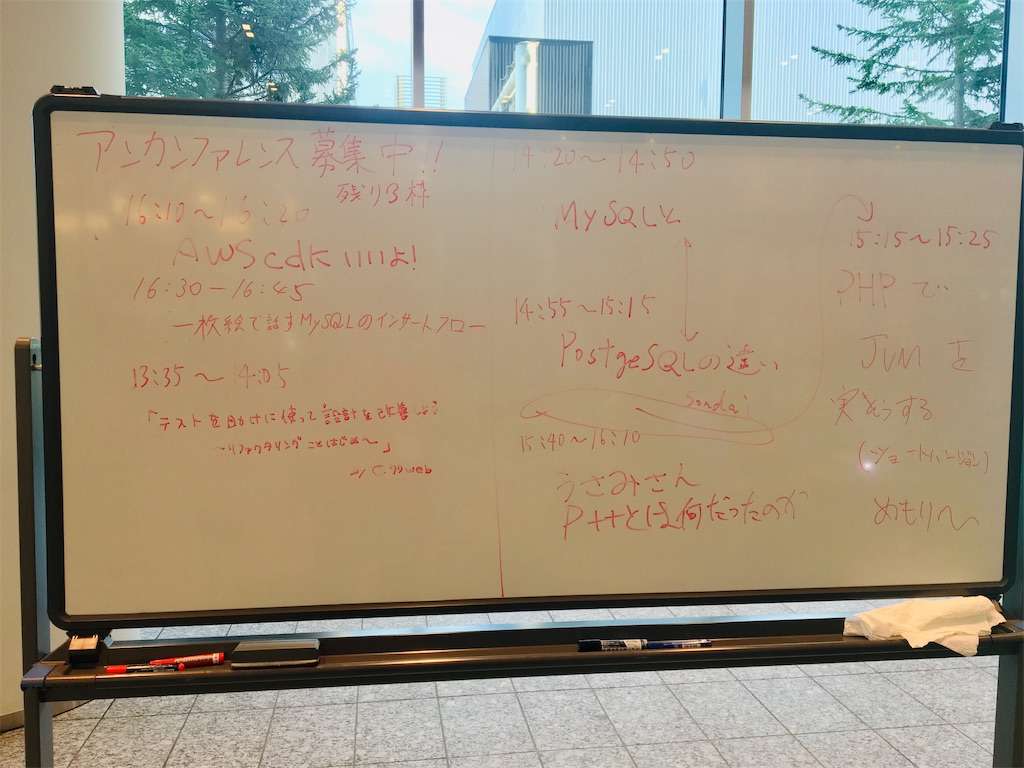 アンカンファレンス募集中!
残り3枠
16:10〜16:20
AWS cdkいいよ!
16:30-16:45
一枚絵で話すMySQLのインサートフロー
13:35〜14:05
「テストを
に使って設計を改善しよう
〜リファクタリングことはじめ〜」
web
14:20〜14:50
MySQLと
14:55〜15:15
PostgeSQLの違い
Soudai
15:40〜16:10
うさみさん
P++とは何だったのか
15:15〜15:25
PHPで
JVMを
実そうする
(ショートバージョン)
めもりー